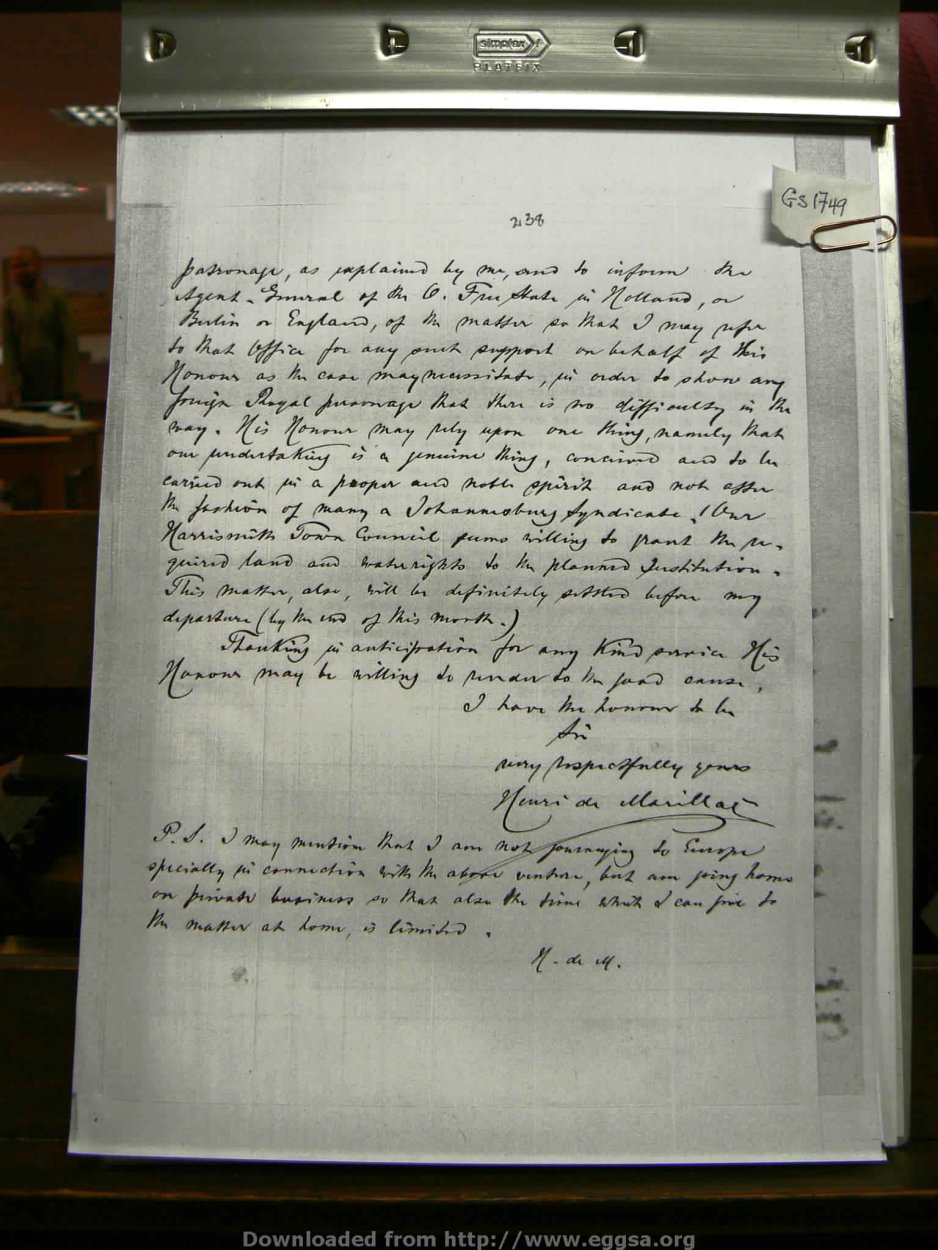 simplex
PLATFIX
GS 1749
238
patronage, as explained by me, and to inform the
Agent-General of the O. Free State in Holland, or
Berlin or England, of the matter so that I may refer
to that Office for any such support on behalf of His
Honour as the case may necessitate, in order to show any
foreign Royal personage that there is no difficulty in the
way. His Honour may rely upon one thing, namely that
our undertaking is a genuine thing, conceived and to be
carried out in a proper and noble spirit and not after
the fashion of many a Johannesburg Syndicate! Our
Harrismith Town Council seems willing to grant the re-
quired land and waterrights to the planned Institution.
This matter, also, will be definitely settled before my
departure (by the end of this month.)
Thanking in anticipation for any kind service His
Honour may be willing to render to the good cause,
I have the honour to be
Sir
very respectfully yours
Henri de Marillac
P.S. I may mention that I am not journeying to Europe
specially in connection with the above venture, but am going home
on private business so that also the time which I can give to
the matter at home, is limited.
H. de M.
Downloaded from http://www.eggsa.org